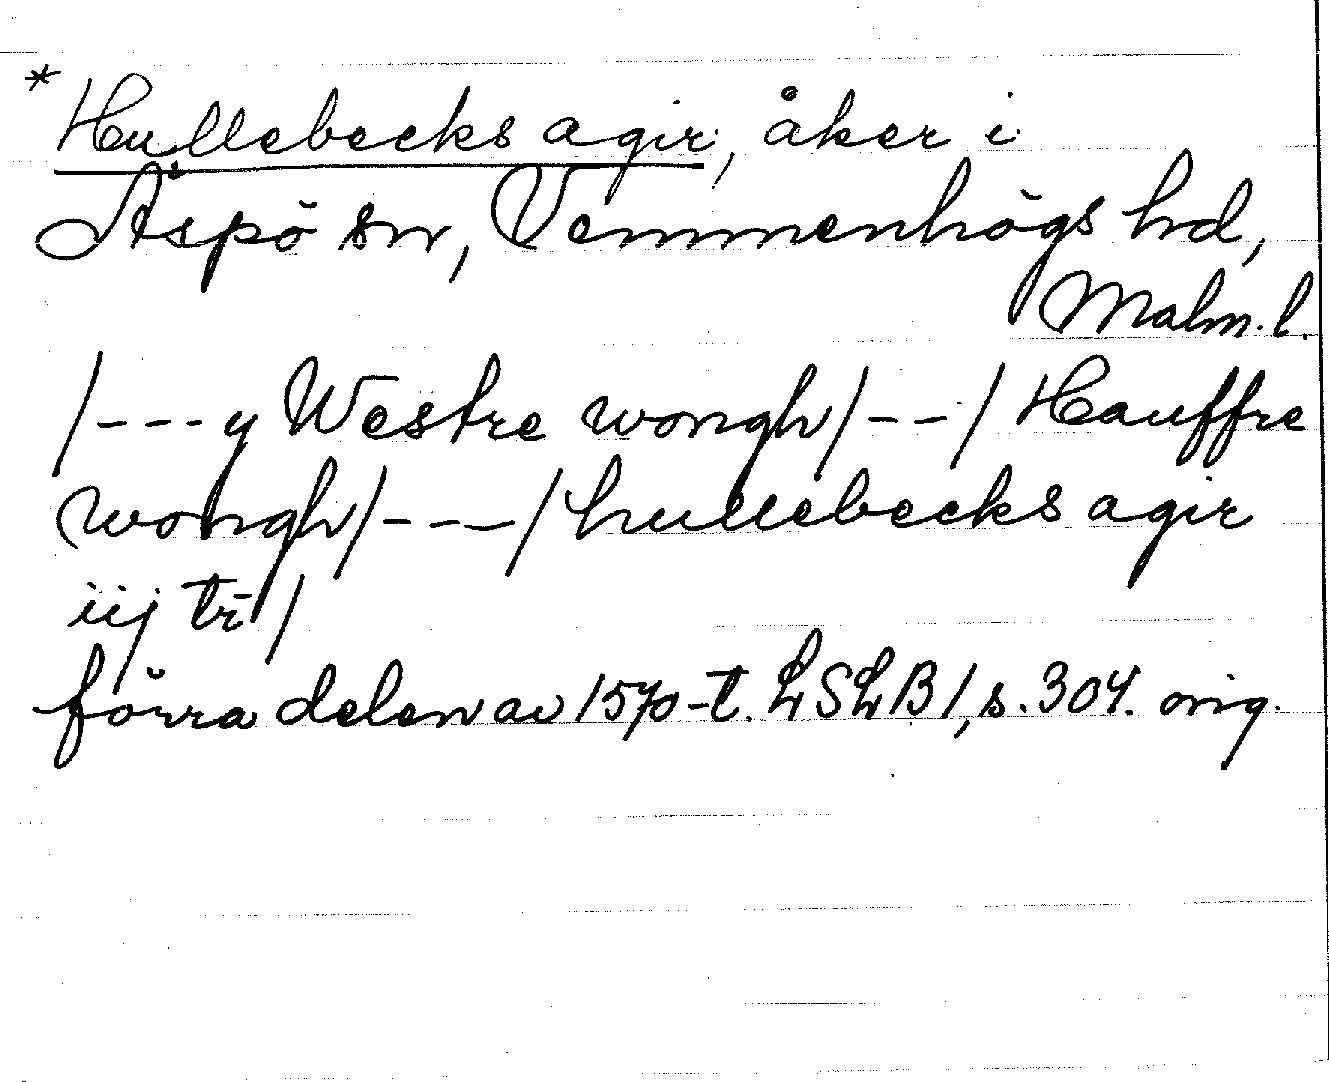 * Hullebecks agir, åker i
Äspö sn, Vemmenhögs hd,
Malm. l.
/---y Westre wongh/---/ Hauffre
wongh/---/ hullebecks agir
iij tr̄ /
förra delen av 1570-t. LSLB 1, s. 304. orig.